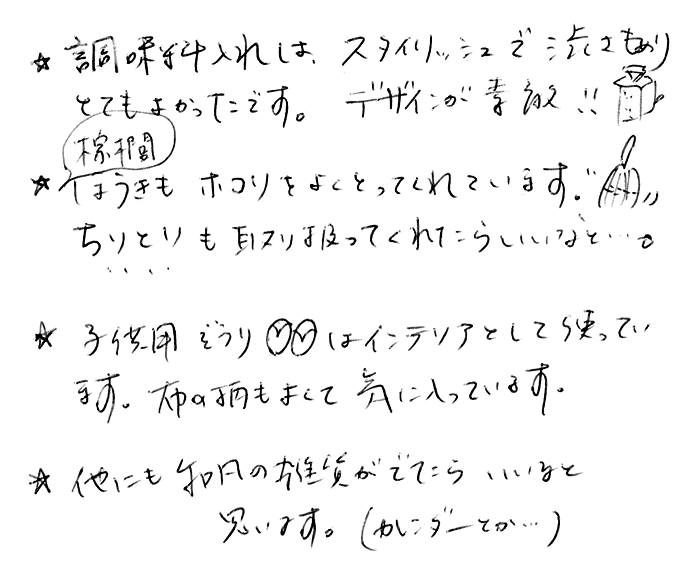 ☆ 調味料入れは、スタイリッシュで渋さもあり
とてもよかったです。 デザインが素敵!!
棕櫚
☆ ほうきも ホコリをよくとってくれています。
ちりとりも取り扱ってくれたらいいなと…。
☆ 子供用 ぞうり はインテリアとして使ってい
ます。布の柄もよくて 気に入っています。
☆ 他にも 和風の雑貨がでてたら いいなと
思います。(カレンダーとか…)